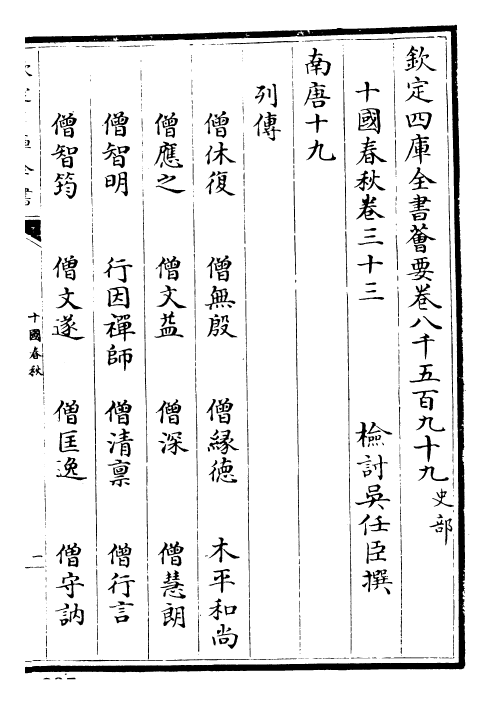 欽定四庫全書薈要卷八千五百九十九 史部
十國春秋卷三十三 檢討吳任臣撰
南唐十九
列傳
僧休復 僧無殷 僧緣德 木平和尚
僧應之 僧文益 僧深 僧慧朗
僧智明 行因禪師 僧清稟 僧行言
僧智筠 僧文遂 僧匡逸 僧守訥
十國春秋